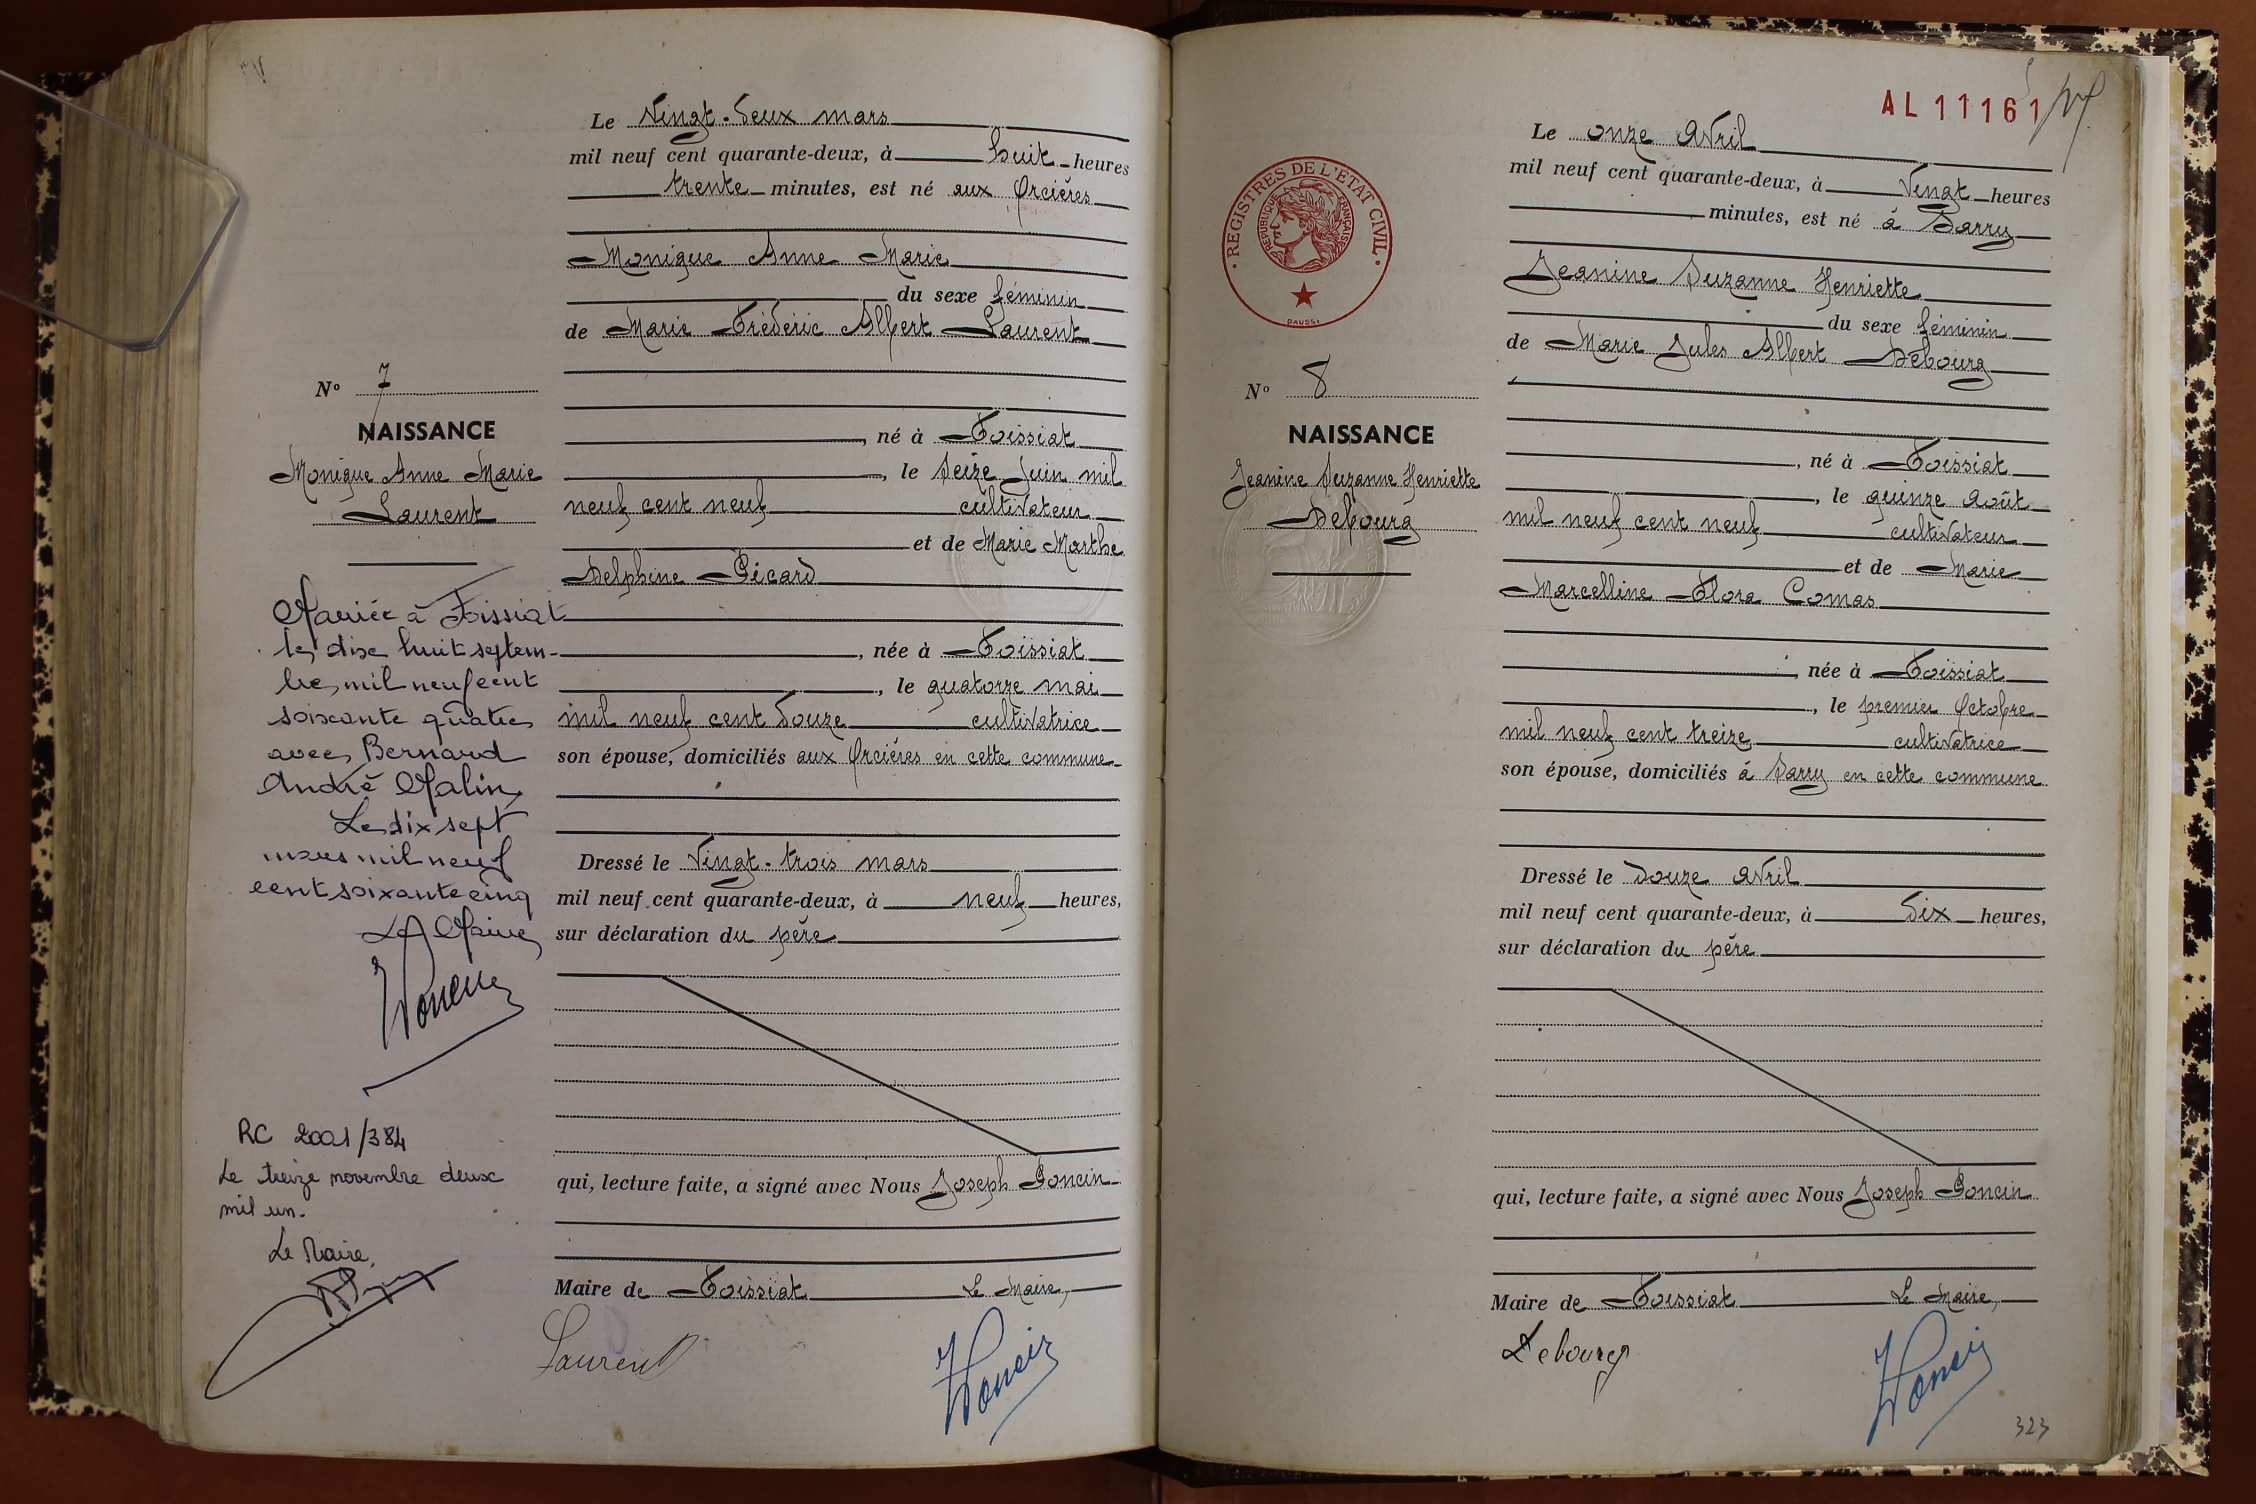 Le Vingt-deux mars
mil neuf cent quarante-deux, à huit heures
trente minutes, est né aux Orcières
Monique Anne Marie
du sexe féminin
de Marie Frédéric Albert Laurent
né à Foissiat
, le seize Juin mil
neuf cent neuf cultivateur
et de Marie Marthe
Delphine Picard
, née à Foissiat
, le quatorze mai
mil neuf cent douze cultivatrice
son épouse, domiciliés aux Orcières en cette commune
Dressé le Vingt-trois mars
mil neuf cent quarante-deux, à neuf heures,
sur déclaration du père
qui, lecture faite, a signé avec Nous Joseph Poncin
Maire de Foissiat Le Maire,
Laurent Poncin
N° 7
NAISSANCE
Monique Anne Marie
Laurent
Mariée à Foissiat
le dix huit septem-
bre mil neuf cent
soixante quatre
avec Bernard
André Malin
Le dix sept
mars mil neuf
cent soixante cinq
Le Maire
Poncin
RC 2001/384
Le treize novembre deux
mil un.
Le Maire,
AL 11161
Le onze Avril
mil neuf cent quarante-deux, à Vingt heures
minutes, est né à Sarry
Jeanine Suzanne Henriette
du sexe féminin
de Marie Jules Albert Debourg
, né à Foissiat
, le quinze Août
mil neuf cent neuf cultivateur
et de Marie
Marcelline Flora Comas
, née à Foissiat
, le premier Octobre
mil neuf cent treize cultivatrice
son épouse, domiciliés à Sarry en cette commune
Dressé le douze Avril
mil neuf cent quarante-deux, à dix heures,
sur déclaration du père
qui, lecture faite, a signé avec Nous Joseph Poncin
Maire de Foissiat Le Maire,
Debourg Poncin
323
REGISTRES DE L'ETAT CIVIL
REPUBLIQUE FRANÇAISE
DAUSSI
N° 8
NAISSANCE
Jeanine Suzanne Henriette
Debourg